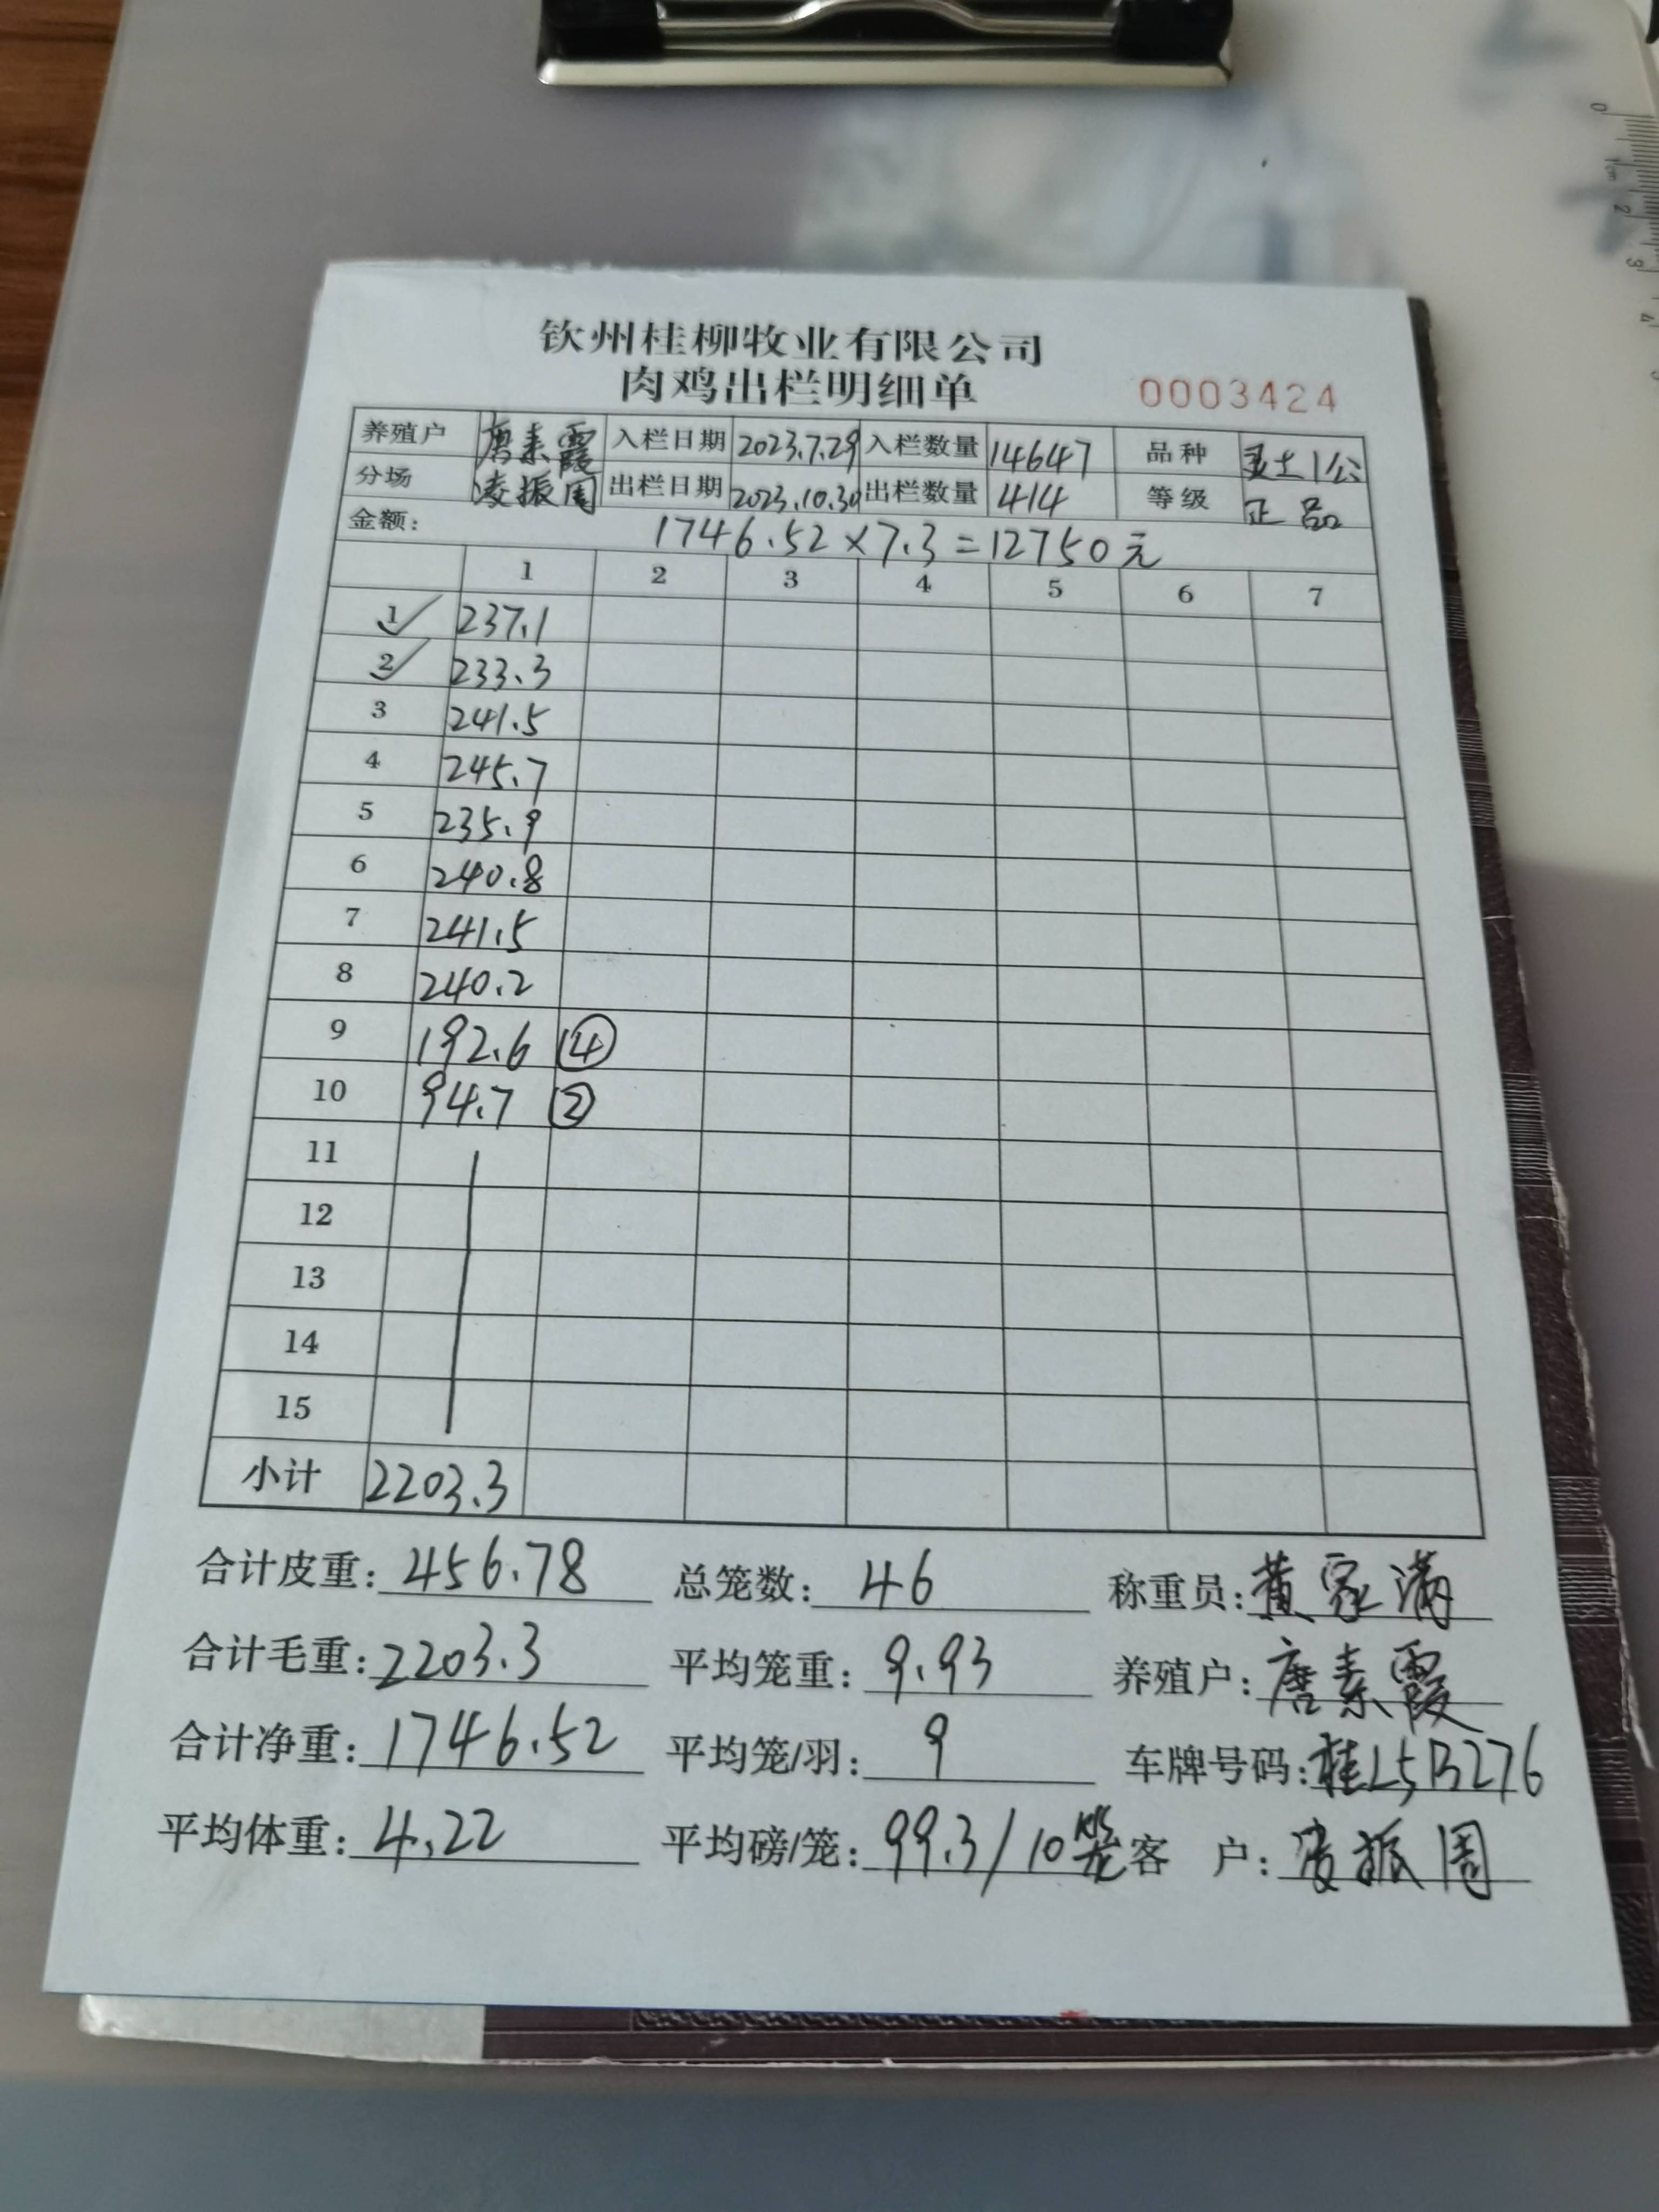 钦州桂柳牧业有限公司
肉鸡出栏明细单 0003424
养殖户 唐素霞 入栏日期 2023.7.29 入栏数量 14647 品种 灵土1公
分场 凌振周 出栏日期 2023.10.30 出栏数量 414 等级 正品
金额: 1746.52×7.3=12750元
1 2 3 4 5 6 7
1 237.1
2 233.3
3 241.5
4 245.7
5 235.9
6 240.8
7 241.5
8 240.2
9 192.6 ④
10 94.7 ②
11
12
13
14
15
小计 2203.3
合计皮重: 456.78 总笼数: 46 称重员: 黄家满
合计毛重: 2203.3 平均笼重: 9.93 养殖户: 唐素霞
合计净重: 1746.52 平均笼/羽: 9 车牌号码: 桂L5B276
平均体重: 4.22 平均磅/笼: 99.3/10笼 客 户: 凌振周
0 1cm 2 3 4